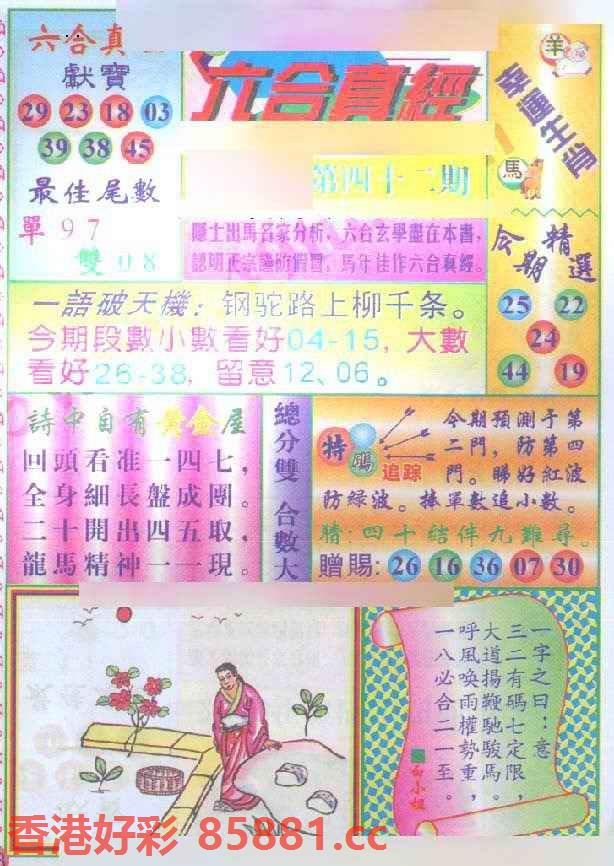 六合真
獻寶
29 23 18 03
39 38 45
最佳尾數
單 9 7
雙 0 8
六合真經
第四十二期
隱士出馬名家分析，六合玄學盡在本書，
認明正宗謹防假冒，馬年佳作六合真經。
羊
幸運生肖
馬
今期精選
25 22
24
44 19
一語破天機：钢驼路上柳千条。
今期段數小數看好04-15，大數
看好26-38，留意12、06。
詩中自有黃金屋
回頭看准一四七，
全身細長盤成團。
二十開出四五取，
龍馬精神一一現。
總分雙 合數大
特碼追踪
今期預測予第
二門，防第四
門。睇好紅波
防緑波。捧單數追小數。
猜：四十结伴九難尋。
贈賜：26 16 36 07 30
一字之曰：意
三二有碼七定限，
大道揚鞭馳駿馬。
呼風喚雨權勢重，
一八必合二一至。
白小姐
香港好彩 85881.cc